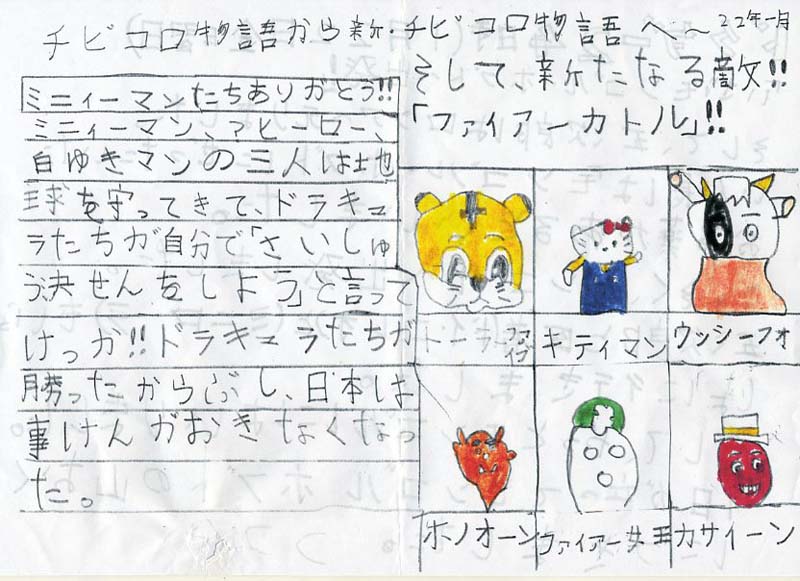 チビコロ物語から新・チビコロ物語へ〜 22年一月
ミニィーマンたちありがとう!!
ミニィーマン、アヒーロー、
白ゆきマンの三人は地
球を守ってきて、ドラキュ
ラたちが自分で「さいしゅ
う決せんをしよう」と言って
けっか!!ドラキュラたちが
勝ったからぶじ、日本は
事けんがおきなくなっ
た。
そして、新たなる敵!!
「ファイアーカトル」!!
トーラーファイブ
キティマン
ウッシーフォ
ホノオーン
ファイアー女王
カサイーン